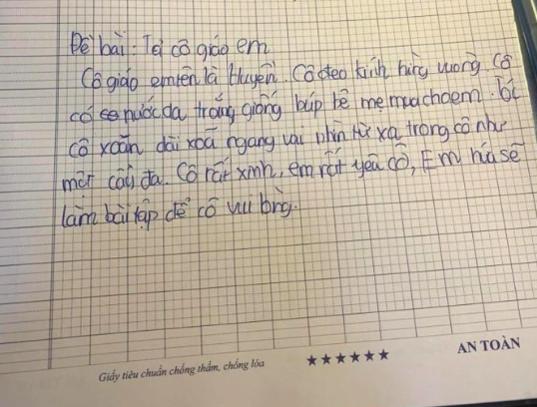 Đề bài: Tả cô giáo em
Cô giáo em tên là Huyền. Cô đeo kính hùng vuông. Cô
có nước da trắng giống búp bê mẹ mua cho em. Tóc
cô xoăn dài xoã ngang vai nhìn từ xa trông cô như
một cây đa. Cô rất xinh, em rất yêu cô, Em hứa sẽ
làm bài tập để cô vui lòng.
Giấy tiêu chuẩn chống thấm, chống lóa ★★★★★★ AN TOÀN